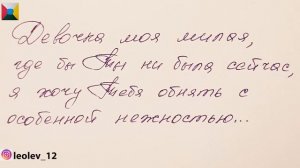 Девочка моя милая,
где бы Ты ни была сейчас,
я хочу Тебя обнять с
особенной нежностью...
leolev_12